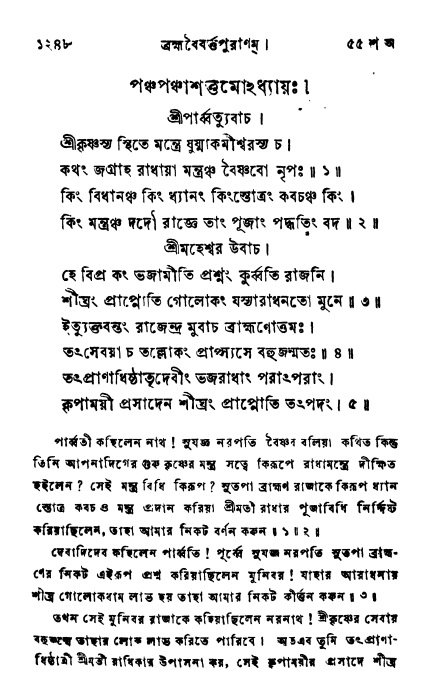 ১২৪৮ ব্রহ্মবৈবর্ত্তপুরাণম্। ৫৫ শ অ
পঞ্চপঞ্চাশত্তমোঽধ্যায়ঃ।
শ্রীপার্ব্বত্যুবাচ।
শ্রীকৃষ্ণস্য স্থিতে মন্ত্রে যুষ্মাকমীশ্বরস্য চ।
কথং জগ্রাহ রাধায়া মন্ত্রঞ্চ বৈষ্ণবো নৃপঃ॥ ১॥
কিং বিধানঞ্চ কিং ধ্যানং কিংস্তোত্রং কবচঞ্চ কিং।
কিং মন্ত্রঞ্চ দদৌ রাজ্ঞে তাং পূজাং পদ্ধতিং বদ॥ ২॥
শ্রীমহেশ্বর উবাচ।
হে বিপ্র কং ভজামীতি প্রশ্নং কুর্ব্বতি রাজনি।
শীঘ্রং প্রাপ্নোতি গোলোকং যস্যারাধনতো মুনে॥ ৩॥
ইত্যুক্তবন্তং রাজেন্দ্র মুবাচ ব্রাহ্মণোত্তমঃ।
তৎসেবয়া চ তল্লোকং প্রাপ্স্যসে বহুজন্মতঃ॥ ৪॥
তৎপ্রাণাধিষ্ঠাতৃদেবীং ভজরাধাং পরাৎপরাং।
কৃপাময়ী প্রসাদেন শীঘ্রং প্রাপ্নোতি তৎপদং। ৫॥
পার্ব্বতী কহিলেন নাথ! সুযজ্ঞ নরপতি বৈষ্ণব বলিয়া কথিত কিন্তু
তিনি আপনাদিগের গুরু কৃষ্ণের মন্ত্র সত্ত্বে কিরূপে রাধামন্ত্রে দীক্ষিত
হইলেন? সেই মন্ত্র বিধি কিরূপ? সুতপা ব্রাহ্মণ রাজাকে কিরূপ ধ্যান
স্তোত্র কবচ ও মন্ত্র প্রদান করিয়া শ্রীমতী রাধার পূজাবিধি নির্দ্দিষ্ট
করিয়াছিলেন, তাহা আমার নিকট বর্ণন করুন॥ ১॥ ২॥
দেবাদিদেব কহিলেন পার্ব্বতি! পূর্ব্বে সুযজ্ঞ নরপতি সুতপা ব্রাহ্ম-
ণের নিকট এইরূপ প্রশ্ন করিয়াছিলেন মুনিবর! যাহার আরাধনায়
শীঘ্র গোলোকধাম লাভ হয় তাহা আমার নিকট কীর্ত্তন করুন॥ ৩॥
তখন সেই মুনিবর রাজাকে কহিয়াছিলেন নরনাথ! শ্রীকৃষ্ণের সেবায়
বহুজন্মে তাহার লোক লাভ করিতে পারিবে। অতএব তুমি তৎ প্রাণা-
ধিষ্ঠাত্রী শ্রীমতী রাধিকার উপাসনা কর, সেই কৃপাময়ীর প্রসাদে শীঘ্র